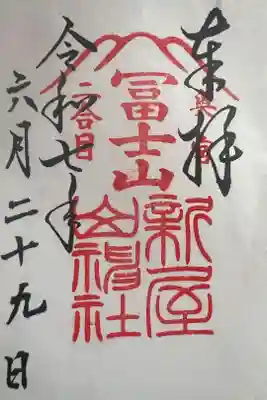 奉拝
冨士山
新屋
山神社
二合目
令和七年
六月二十九日